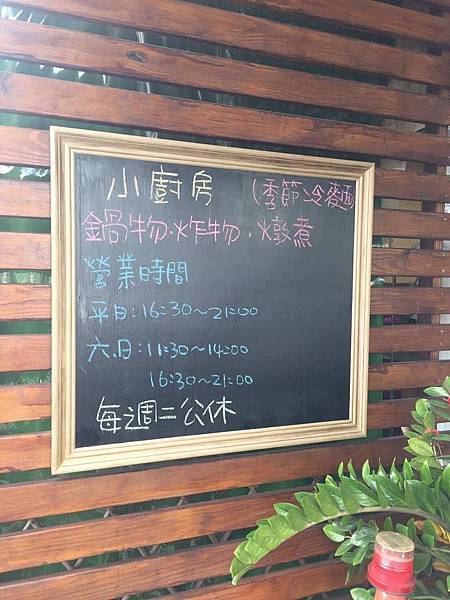 小廚房 (季節冷麵
鍋物.炸物.燉煮
營業時間
平日:16:30~21:00
六.日:11:30~14:00
16:30~21:00
每週二公休